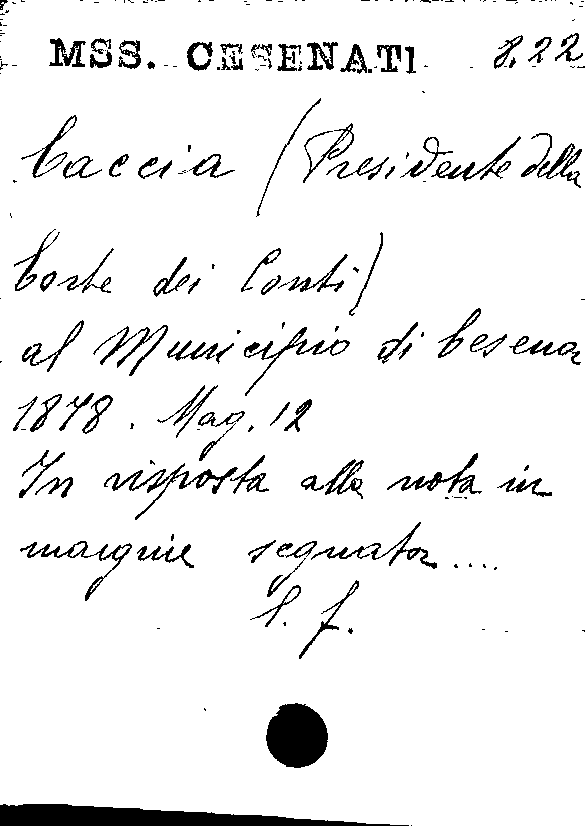 MSS. CESENATI 8.22
Caccia (Presidente della
Corte dei Conti)
al Municipio di Cesena
1878. Mag. 12
In risposta alla nota in
margine segnata....
l. f.